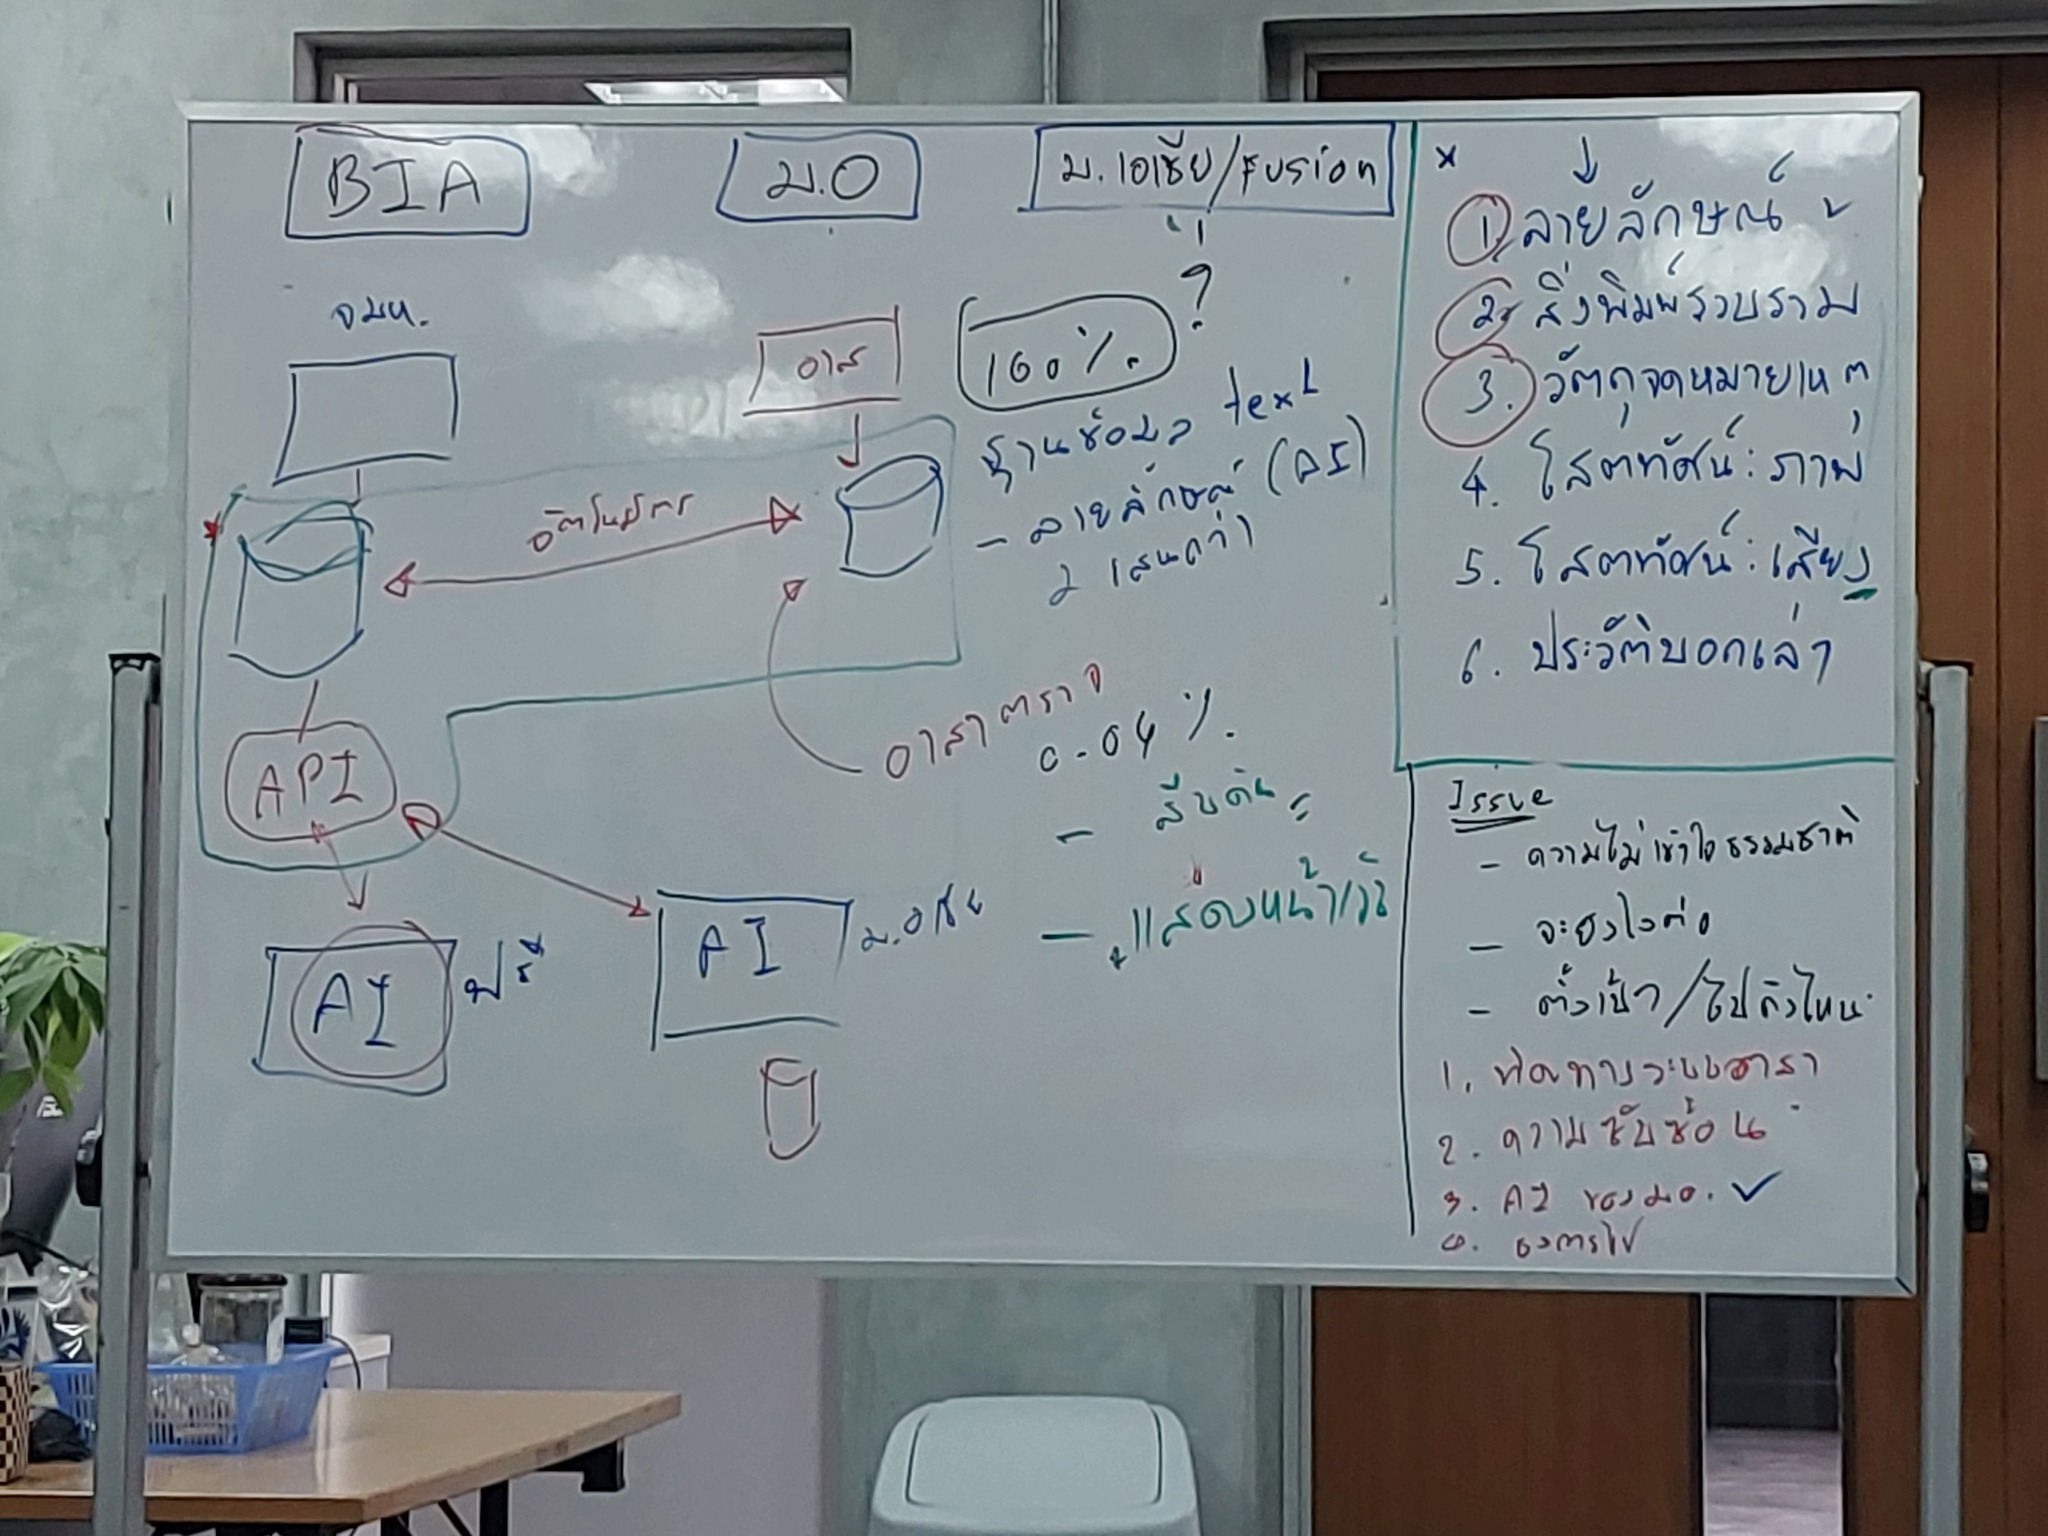 BIA
ม.O
ม.เอเชีย/Fusion
จมห.
อาส
100%
?
ฐานข้อมูล text
- ลายลักษณ์ (AI)
2 แสนกว่า
อัตโนมัติ
API
อาสาตรวจ
0.04%.
- สืบค้น
- แสดงหน้าเว็บ
AI
ฟรี
AI
ม.เอเชีย
1. ลายลักษณ์
2. สิ่งพิมพ์รวบรวม
3. วัตถุจดหมายเหตุ
4. โสตทัศน์: ภาพ
5. โสตทัศน์: เสียง
6. ประวัติบอกเล่า
Issue
- ความไม่เข้าใจธรรมชาติ
- จะยังไงต่อ
- ตั้งเป้า/ไปถึงไหน
1. อาสา
2. ความซับซ้อน
3. AI ของ มอ. ✓
4.